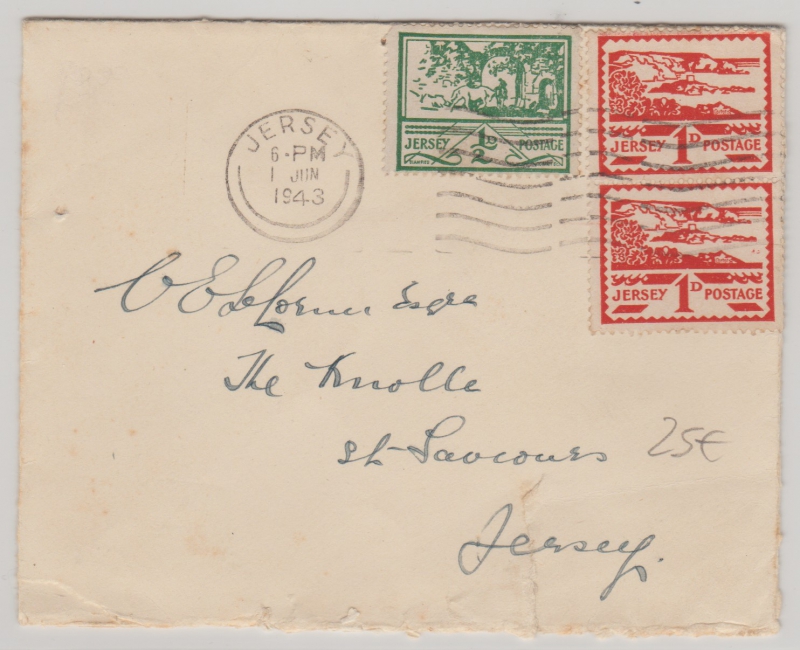 JERSEY
6-PM
1 JUN
1943
JERSEY ½D POSTAGE
JERSEY 1D POSTAGE
JERSEY 1D POSTAGE
C E Le Cornu Esqre
The Knolle
St Saviours
25€
Jersey.